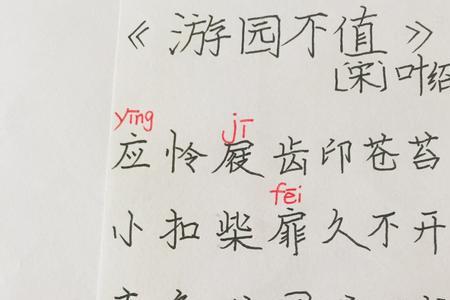 《游园不值》
[宋]叶绍
yīng jī
应怜屐齿印苍苔
fēi
小扣柴扉久不开